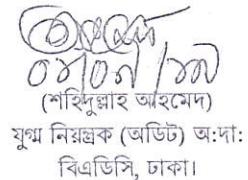 (শহিদুল্লাহ আহমেদ)
যুগ্ম নিয়ন্ত্রক (অডিট) অ:দা:
বিএডিসি, ঢাকা।